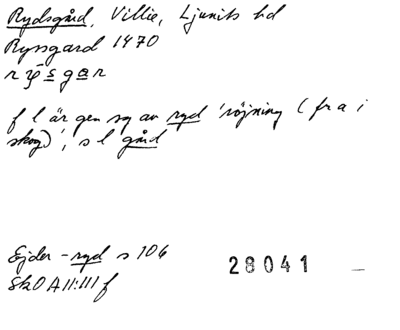 Rydsgård, Villie, Ljunits hd
Ryssgard 1470
rÿ́sgar
f l är gen sg av ryd 'röjning (fr a i
skog)', s l gård
Ejder -ryd s 106
28041 —
SkO A II:III f